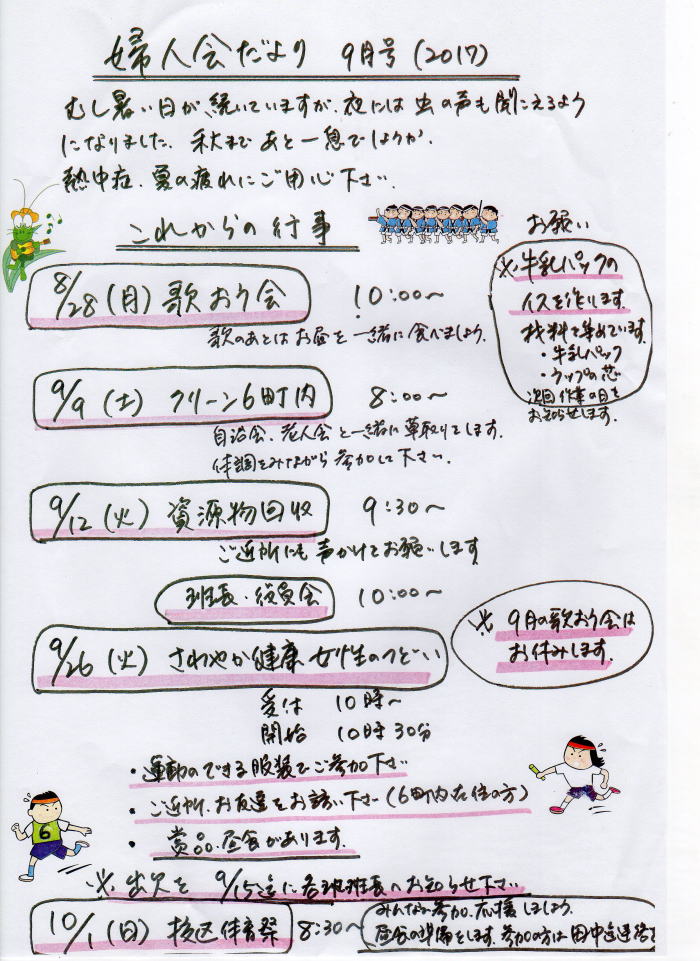 婦人会だより 9月号(2017)
むし暑い日が、続いていますが、夜には虫の声も聞こえるよう
になりました。秋まであと一息でしょうか。
熱中症、夏の疲れにご用心下さい。
これからの行事
8/28(月)歌おう会 10:00〜
歌のあとはお昼を一緒に食べましょう。
お願い
※牛乳パックの
イスを作ります。
材料を集めています。
・牛乳パック
・ラップの芯
次回作業の日を
お知らせします。
9/9(土) クリーン6町内 8:00〜
自治会、老人会と一緒に草取りをします。
体調をみながら参加して下さい。
9/12(火)資源物回収 9:30〜
ご近所にも声かけてお願いします
班長・役員会 10:00〜
※9月の歌おう会は
お休みします。
9/26(火)さわやか健康女性のつどい
受付 10時〜
開始 10時30分
・運動のできる服装でご参加下さい
・ご近所、お友達をお誘い下さい(6町内在住の方)
・賞品、昼食があります。
※出欠を 9/15迄に各班班長へお知らせ下さい
10/1(日)校区体育祭 8:30〜
みんなで参加、応援しましょう。
昼食の準備をします。参加の方は田中迄連絡を
6